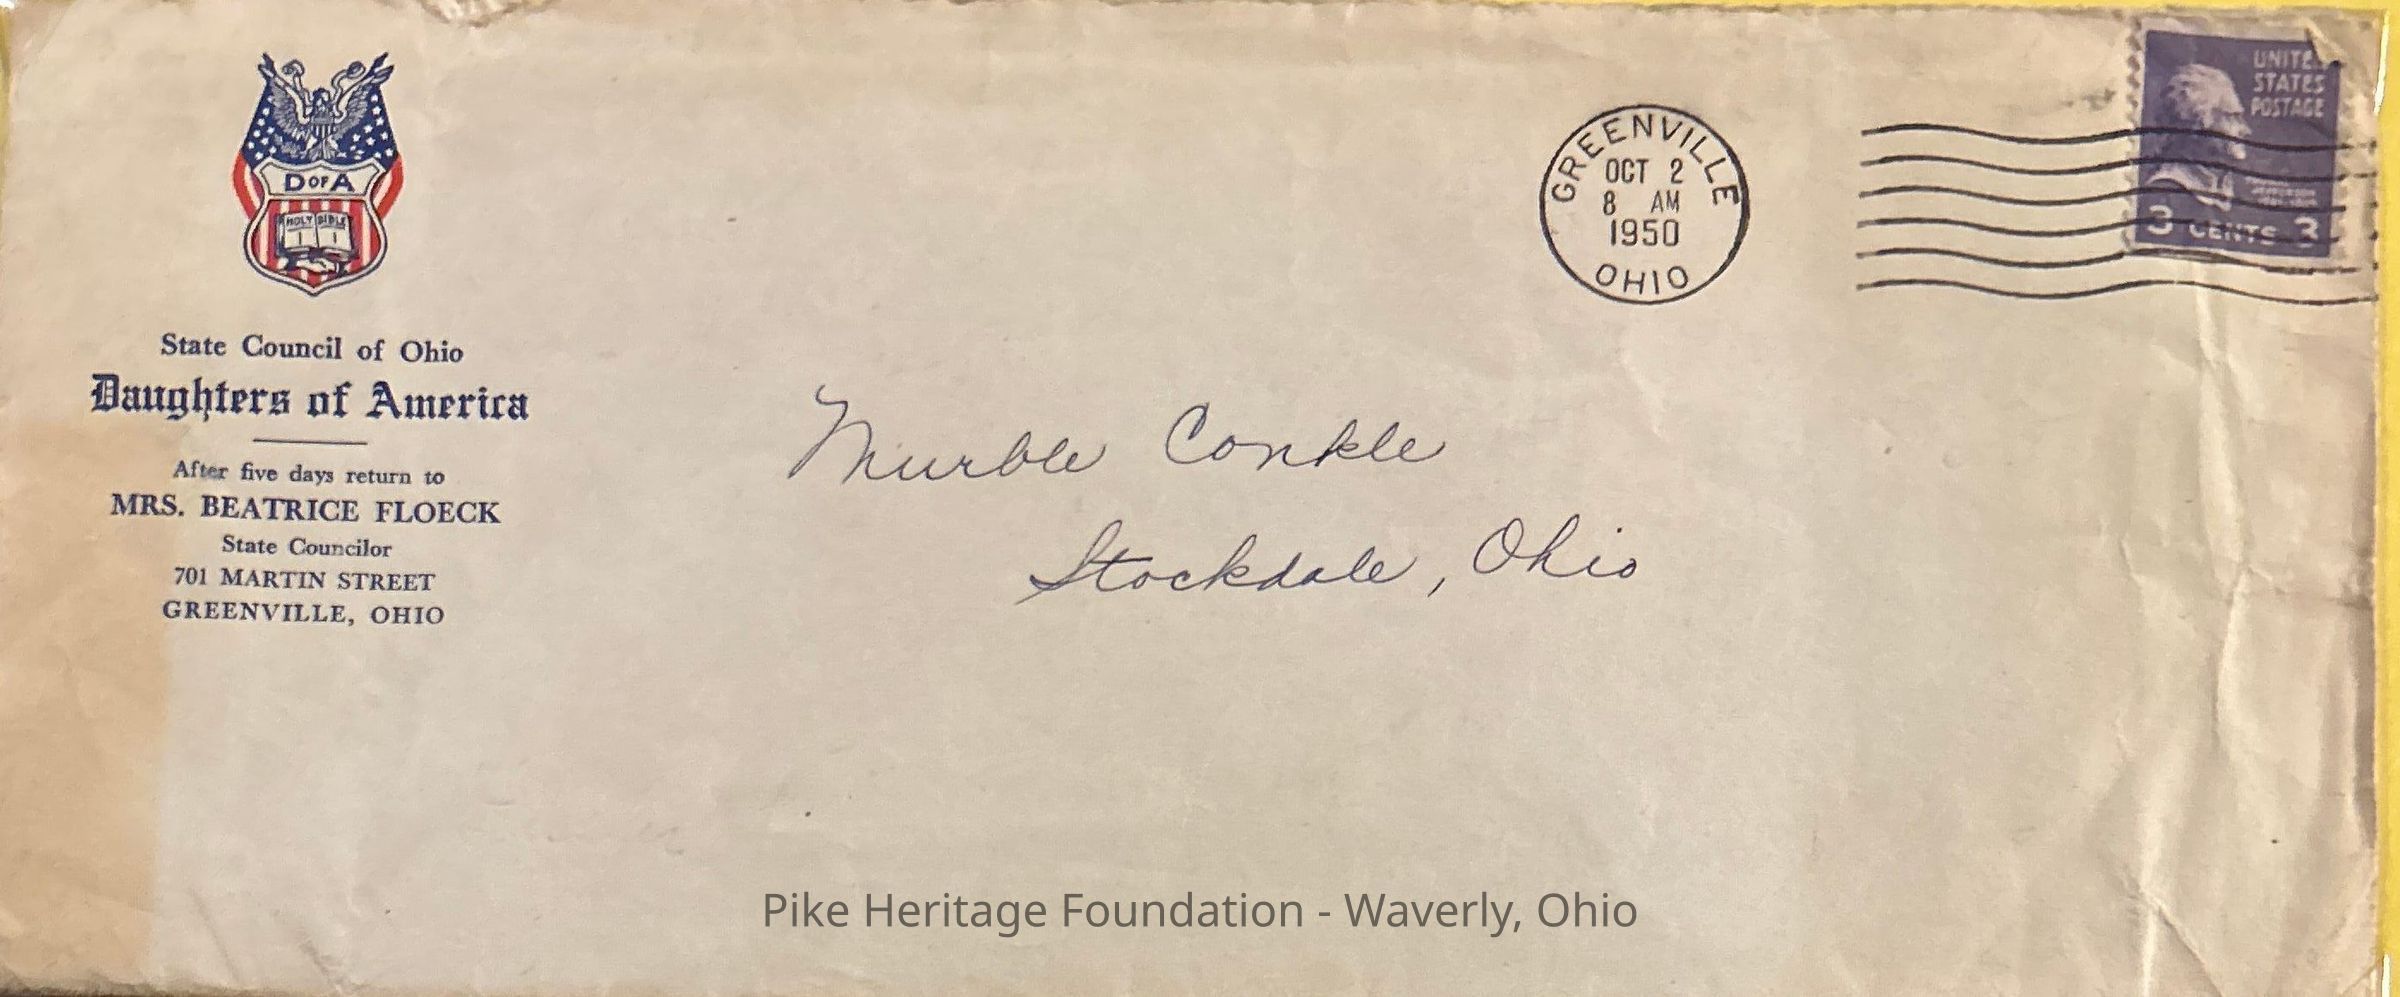 D OF A
HOLY BIBLE
State Council of Ohio
Daughters of America
After five days return to
MRS. BEATRICE FLOECK
State Councilor
701 MARTIN STREET
GREENVILLE, OHIO
GREENVILLE
OCT 2
8 AM
1950
OHIO
UNITED
STATES
POSTAGE
3 CENTS 3
Murble Conkle
Stockdale, Ohio
Pike Heritage Foundation - Waverly, Ohio